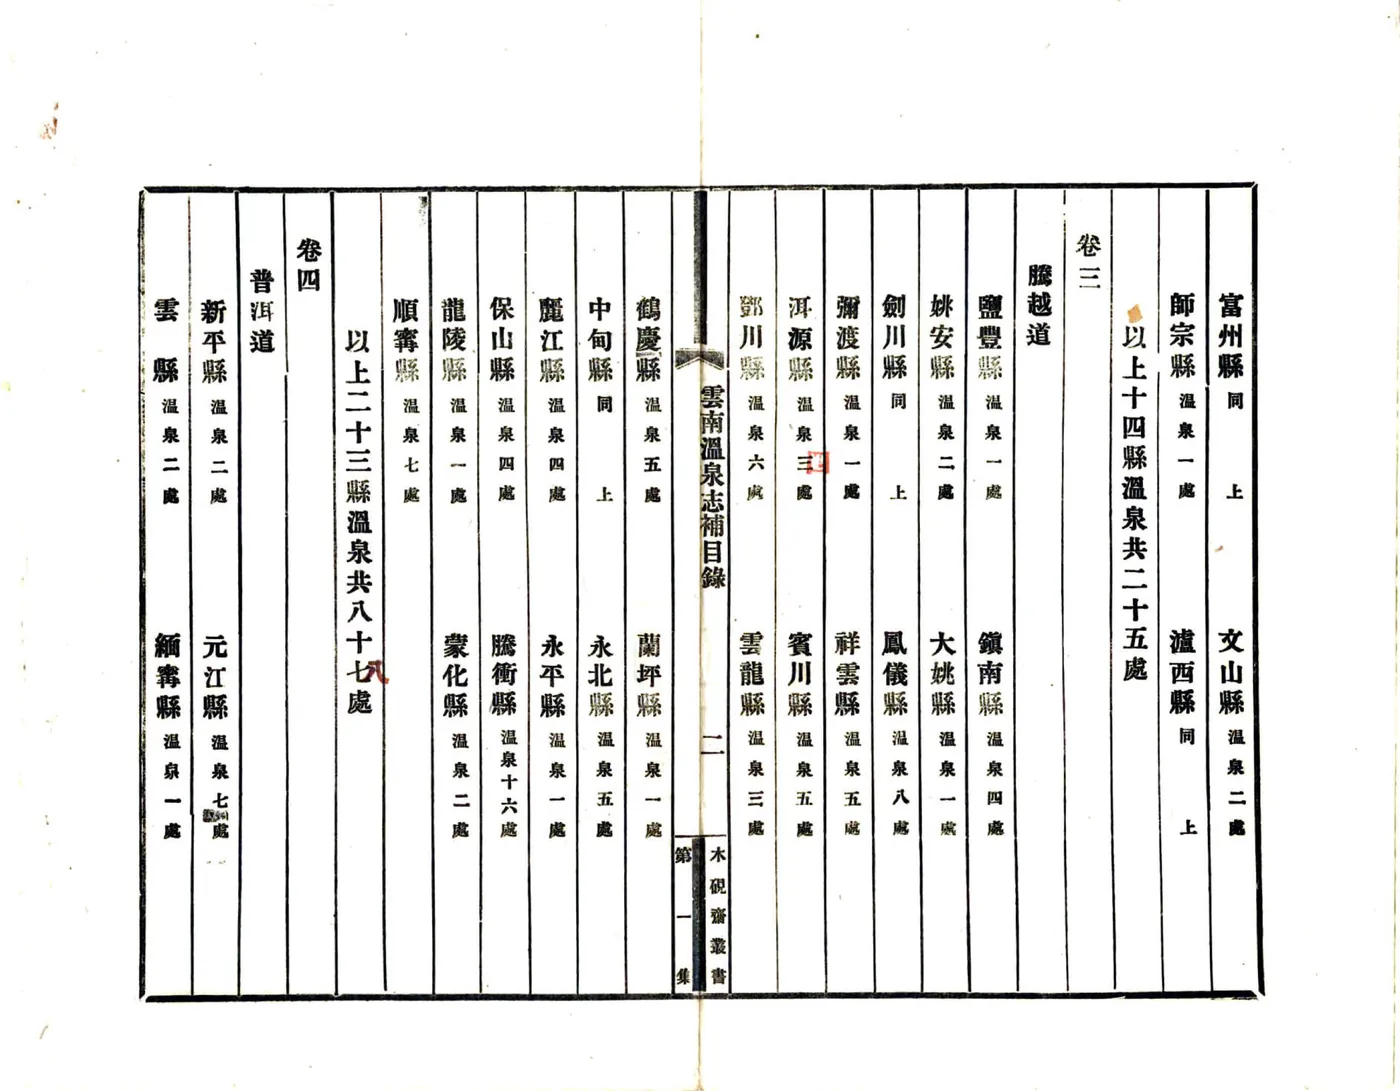 富州縣 同上 文山縣 温泉二處
師宗縣 温泉一處 瀘西縣 同上
以上十四縣溫泉共二十五處
卷三
騰越道
鹽豐縣 温泉一處 鎮南縣 温泉四處
姚安縣 温泉二處 大姚縣 温泉一處
劍川縣 同上 鳳儀縣 温泉八處
彌渡縣 温泉一處 祥雲縣 温泉五處
洱源縣 温泉三處 賓川縣 温泉五處
鄧川縣 温泉六處 雲龍縣 温泉三處
雲南溫泉志補目錄 二
木硯齋叢書
第一集
鶴慶縣 温泉五處 蘭坪縣 温泉一處
中甸縣 同上 永北縣 温泉五處
麗江縣 温泉四處 永平縣 温泉一處
保山縣 温泉四處 騰衝縣 温泉十六處
龍陵縣 温泉一處 蒙化縣 温泉二處
順寗縣 温泉七處
以上二十三縣溫泉共八十七處
八
卷四
普洱道
新平縣 温泉二處 元江縣 温泉七處
雲縣 温泉二處 緬寗縣 温泉一處